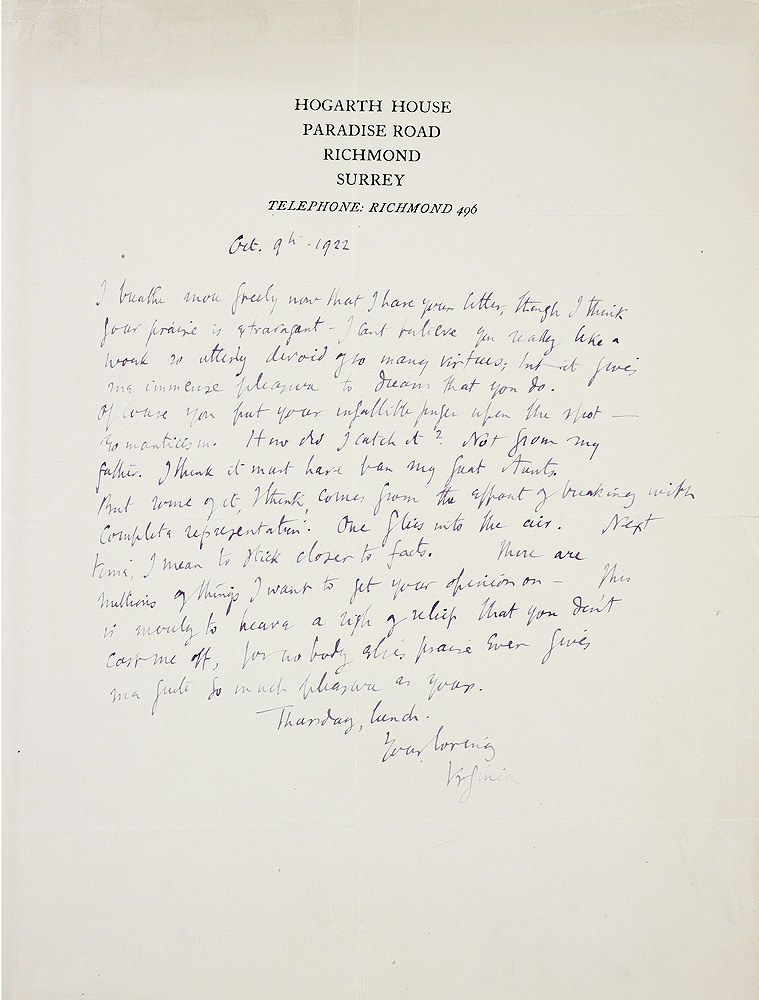 HOGARTH HOUSE
PARADISE ROAD
RICHMOND
SURREY
TELEPHONE: RICHMOND 496
Oct. 9th. 1922
I breathe more freely now that I have your letter, though I think
your praise is extravagant - I cant believe you really like a
work so utterly devoid of so many virtues; but it gives
me immense pleasure to dream that you do.
Of course you put your infallible finger upon the spot —
romanticism. How did I catch it? Not from my
father. I think it must have been my Great Aunts.
But some of it, I think, comes from the effort of breaking with
complete representation. One flies into the air. Next
time, I mean to stick closer to facts. There are
millions of things I want to get your opinion on - This
is merely to heave a sigh of relief that you don't
cast me off, for nobody else's praise ever gives
me quite so much pleasure as yours.
Thursday, lunch.
Your loving
Virginia